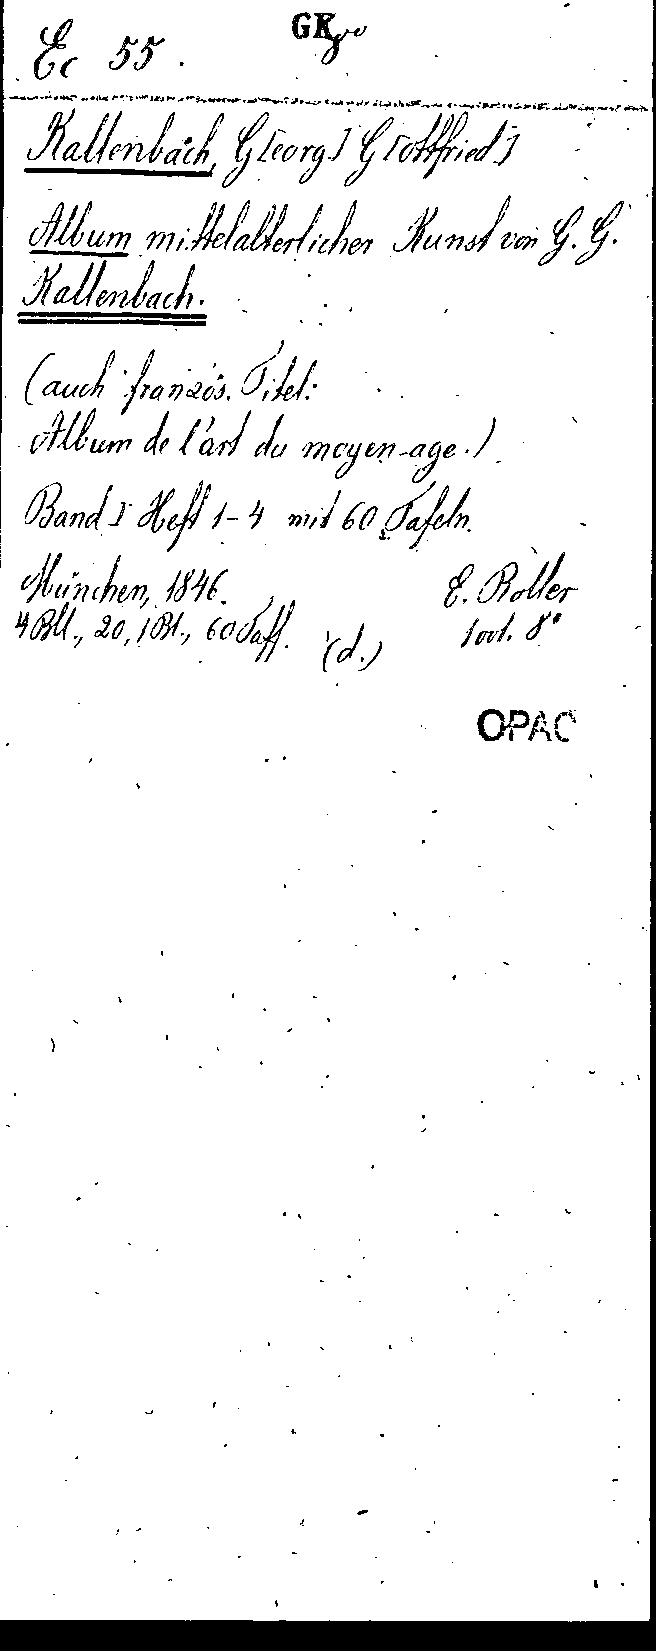 Ec 55. GK
Kallenbach, G[eorg] G[ottfried]
Album mittelalterlicher Kunst von G. G.
Kallenbach.
(auch französ. Titel:
Album de l'art du moyen-age.)
Band I Heft 1-4 mit 60 Tafeln.
München, 1846. E. Roller
4 Bll., 20, 1 Bl., 60 Taff. (d.) 8°
OPAC